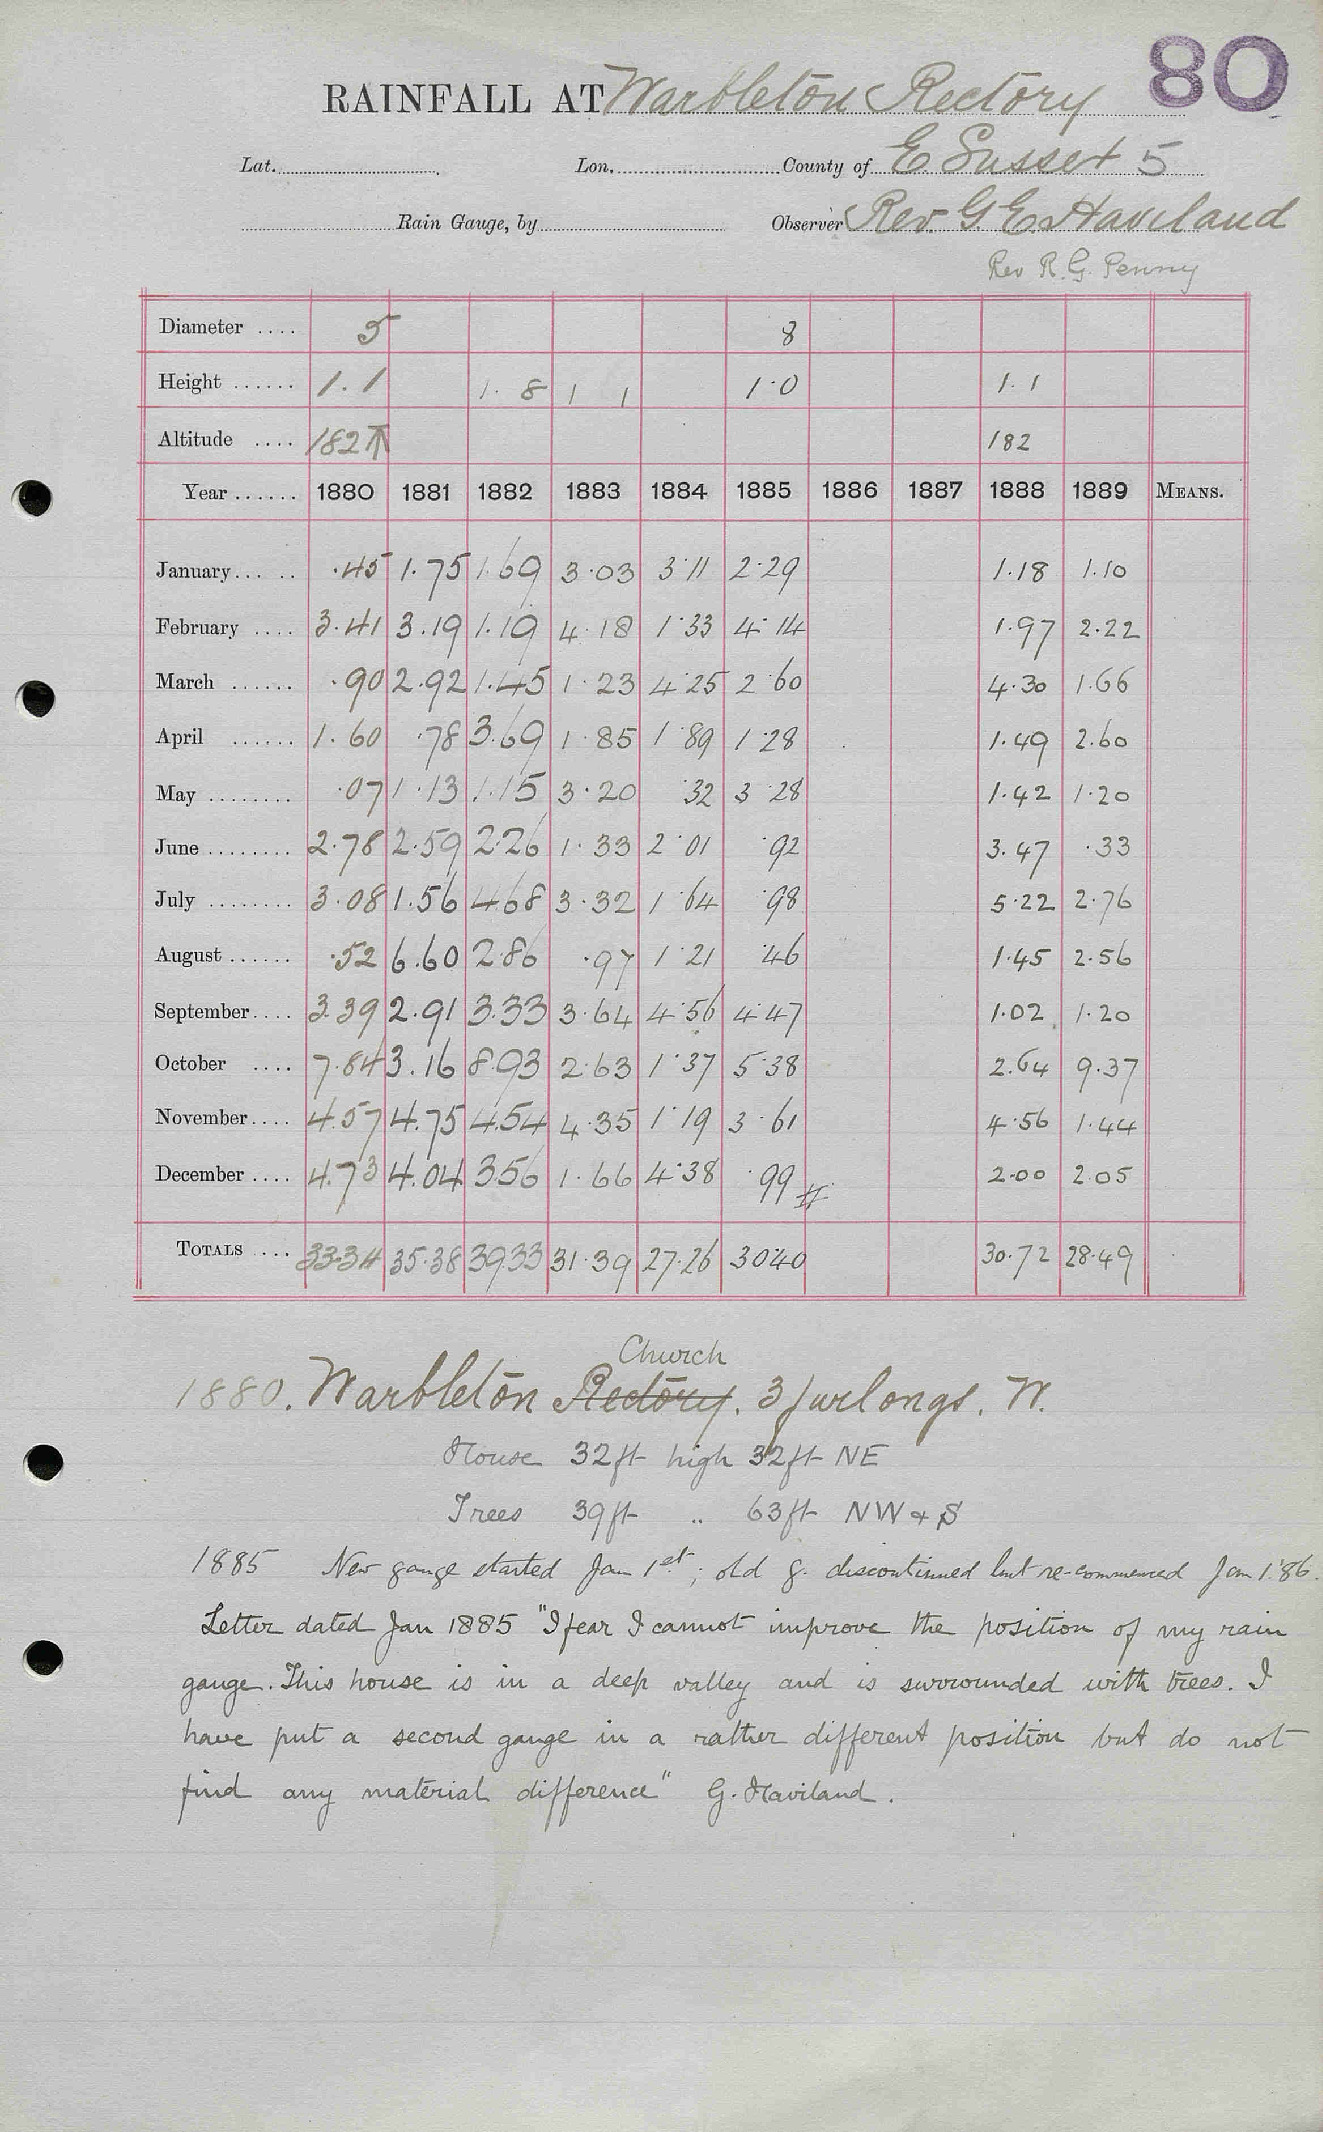 80
RAINFALL AT Warbleton Rectory
Lat. Lon. County of E Sussex 5
Rain Gauge, by Observer Rev. G. E. Haviland
Rev R. G. Penny
Diameter .... 5 8
Height ...... 1.1 1. 8 1 1 1.0 1.1
Altitude .... 182↑ 182
Year ...... 1880 1881 1882 1883 1884 1885 1886 1887 1888 1889 MEANS.
January ..... .45 1.75 1.69 3.03 3.11 2.29 1.18 1.10
February .... 3.41 3.19 1.19 4.18 1.33 4.14 1.97 2.22
March ...... .90 2.92 1.45 1.23 4.25 2.60 4.30 1.66
April ...... 1.60 .78 3.69 1.85 1.89 1.28 1.49 2.60
May ........ .07 1.13 1.15 3.20 .32 3.28 1.42 1.20
June ........ 2.78 2.59 2.26 1.33 2.01 .92 3.47 .33
July ........ 3.08 1.56 4.68 3.32 1.64 .98 5.22 2.76
August ...... .52 6.60 2.86 .97 1.21 .46 1.45 2.56
September .... 3.39 2.91 3.33 3.64 4.56 4.47 1.02 1.20
October .... 7.84 3.16 8.93 2.63 1.37 5.38 2.64 9.37
November .... 4.57 4.75 4.54 4.35 1.19 3.61 4.56 1.44
December .... 4.73 4.04 3.56 1.66 4.38 .99 # 2.00 2.05
TOTALS .... 33.34 35.38 39.33 31.39 27.26 30.40 30.72 28.49
Church
1880. Warbleton Rectory. 3 furlongs. W.
House 32ft high 32ft NE
Trees 39ft .. 63ft NW & S
1885 New gauge started Jan 1st; old g. discontinued but re-commenced Jan 1.'86.
Letter dated Jan 1885 "I fear I cannot improve the position of my rain
gauge. This house is in a deep valley and is surrounded with trees. I
have put a second gauge in a rather different position but do not
find any material difference" G. Haviland.